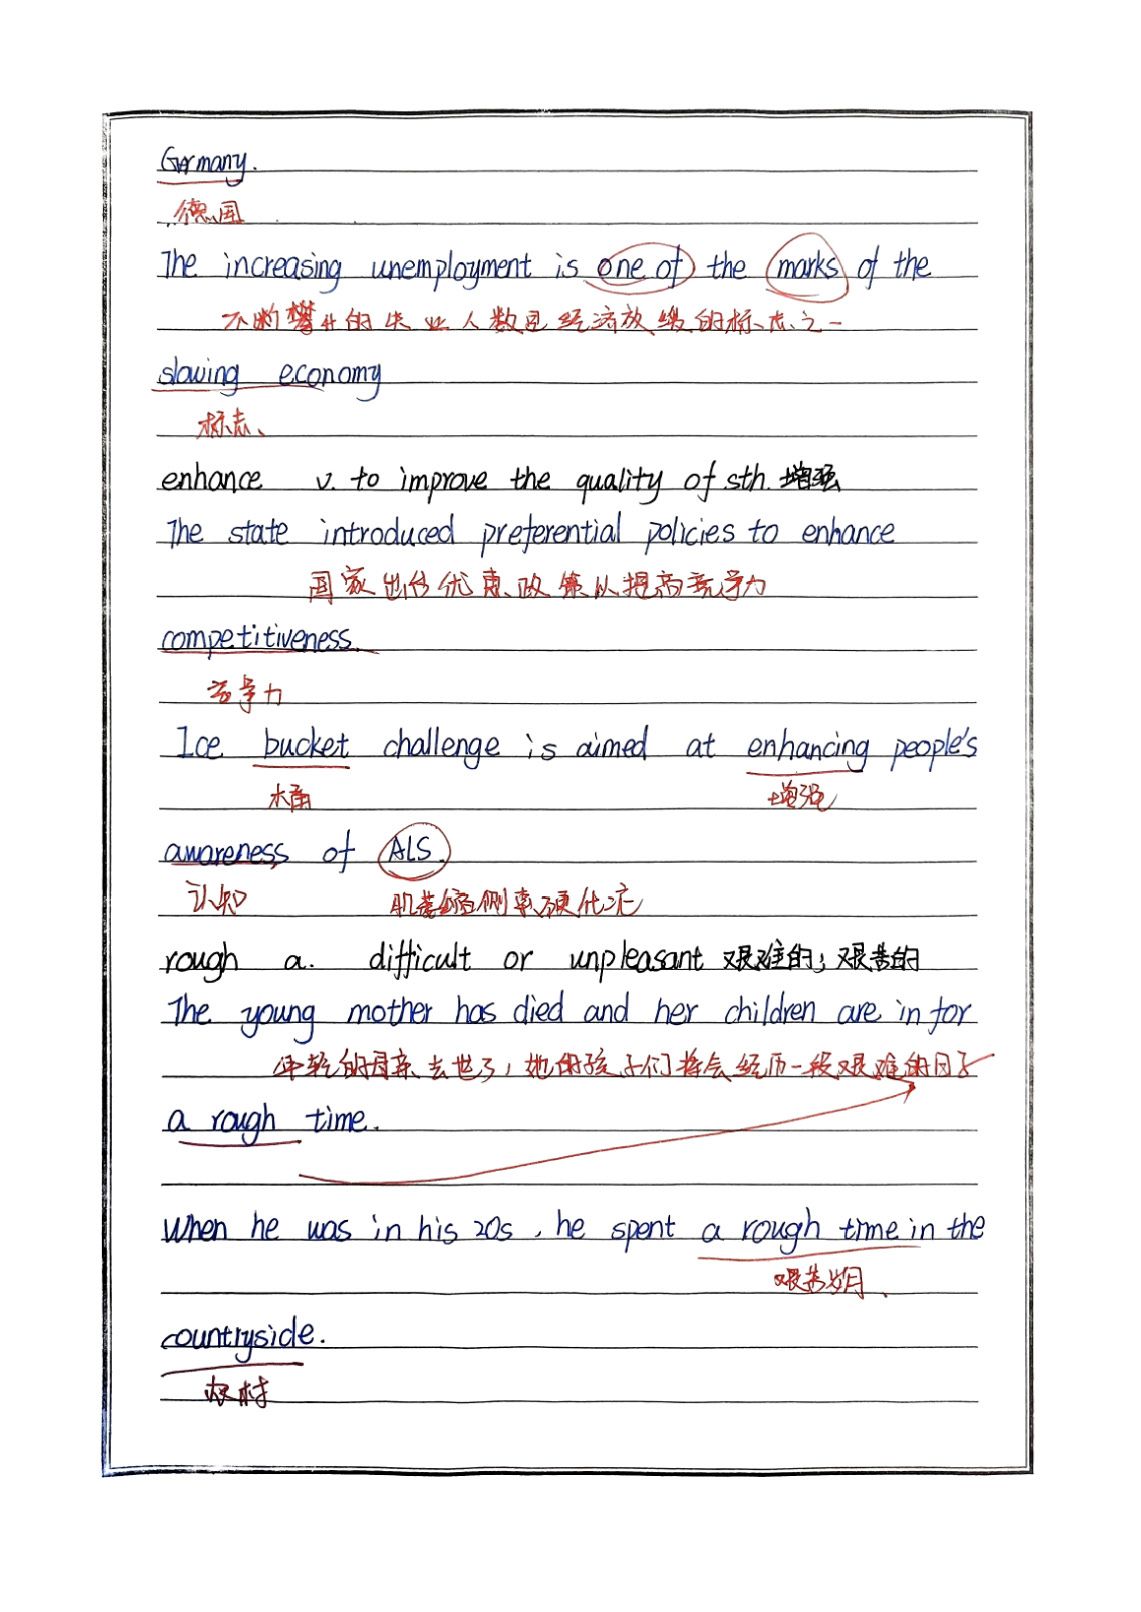 Germany.
德国
The increasing unemployment is one of the marks of the
不断攀升的失业人数是经济放缓的标志之一
slowing economy
标志、
enhance v. to improve the quality of sth. 增强
The state introduced preferential policies to enhance
国家出台优惠政策以提高竞争力
competitiveness.
竞争力
Ice bucket challenge is aimed at enhancing people's
水桶 增强
awareness of ALS.
认知 肌萎缩侧索硬化症
rough a. difficult or unpleasant 艰难的；艰苦的
The young mother has died and her children are in for
年轻的母亲去世了，她的孩子们将会经历一段艰难的日子
a rough time.
When he was in his 20s , he spent a rough time in the
艰苦岁月、
countryside.
农村